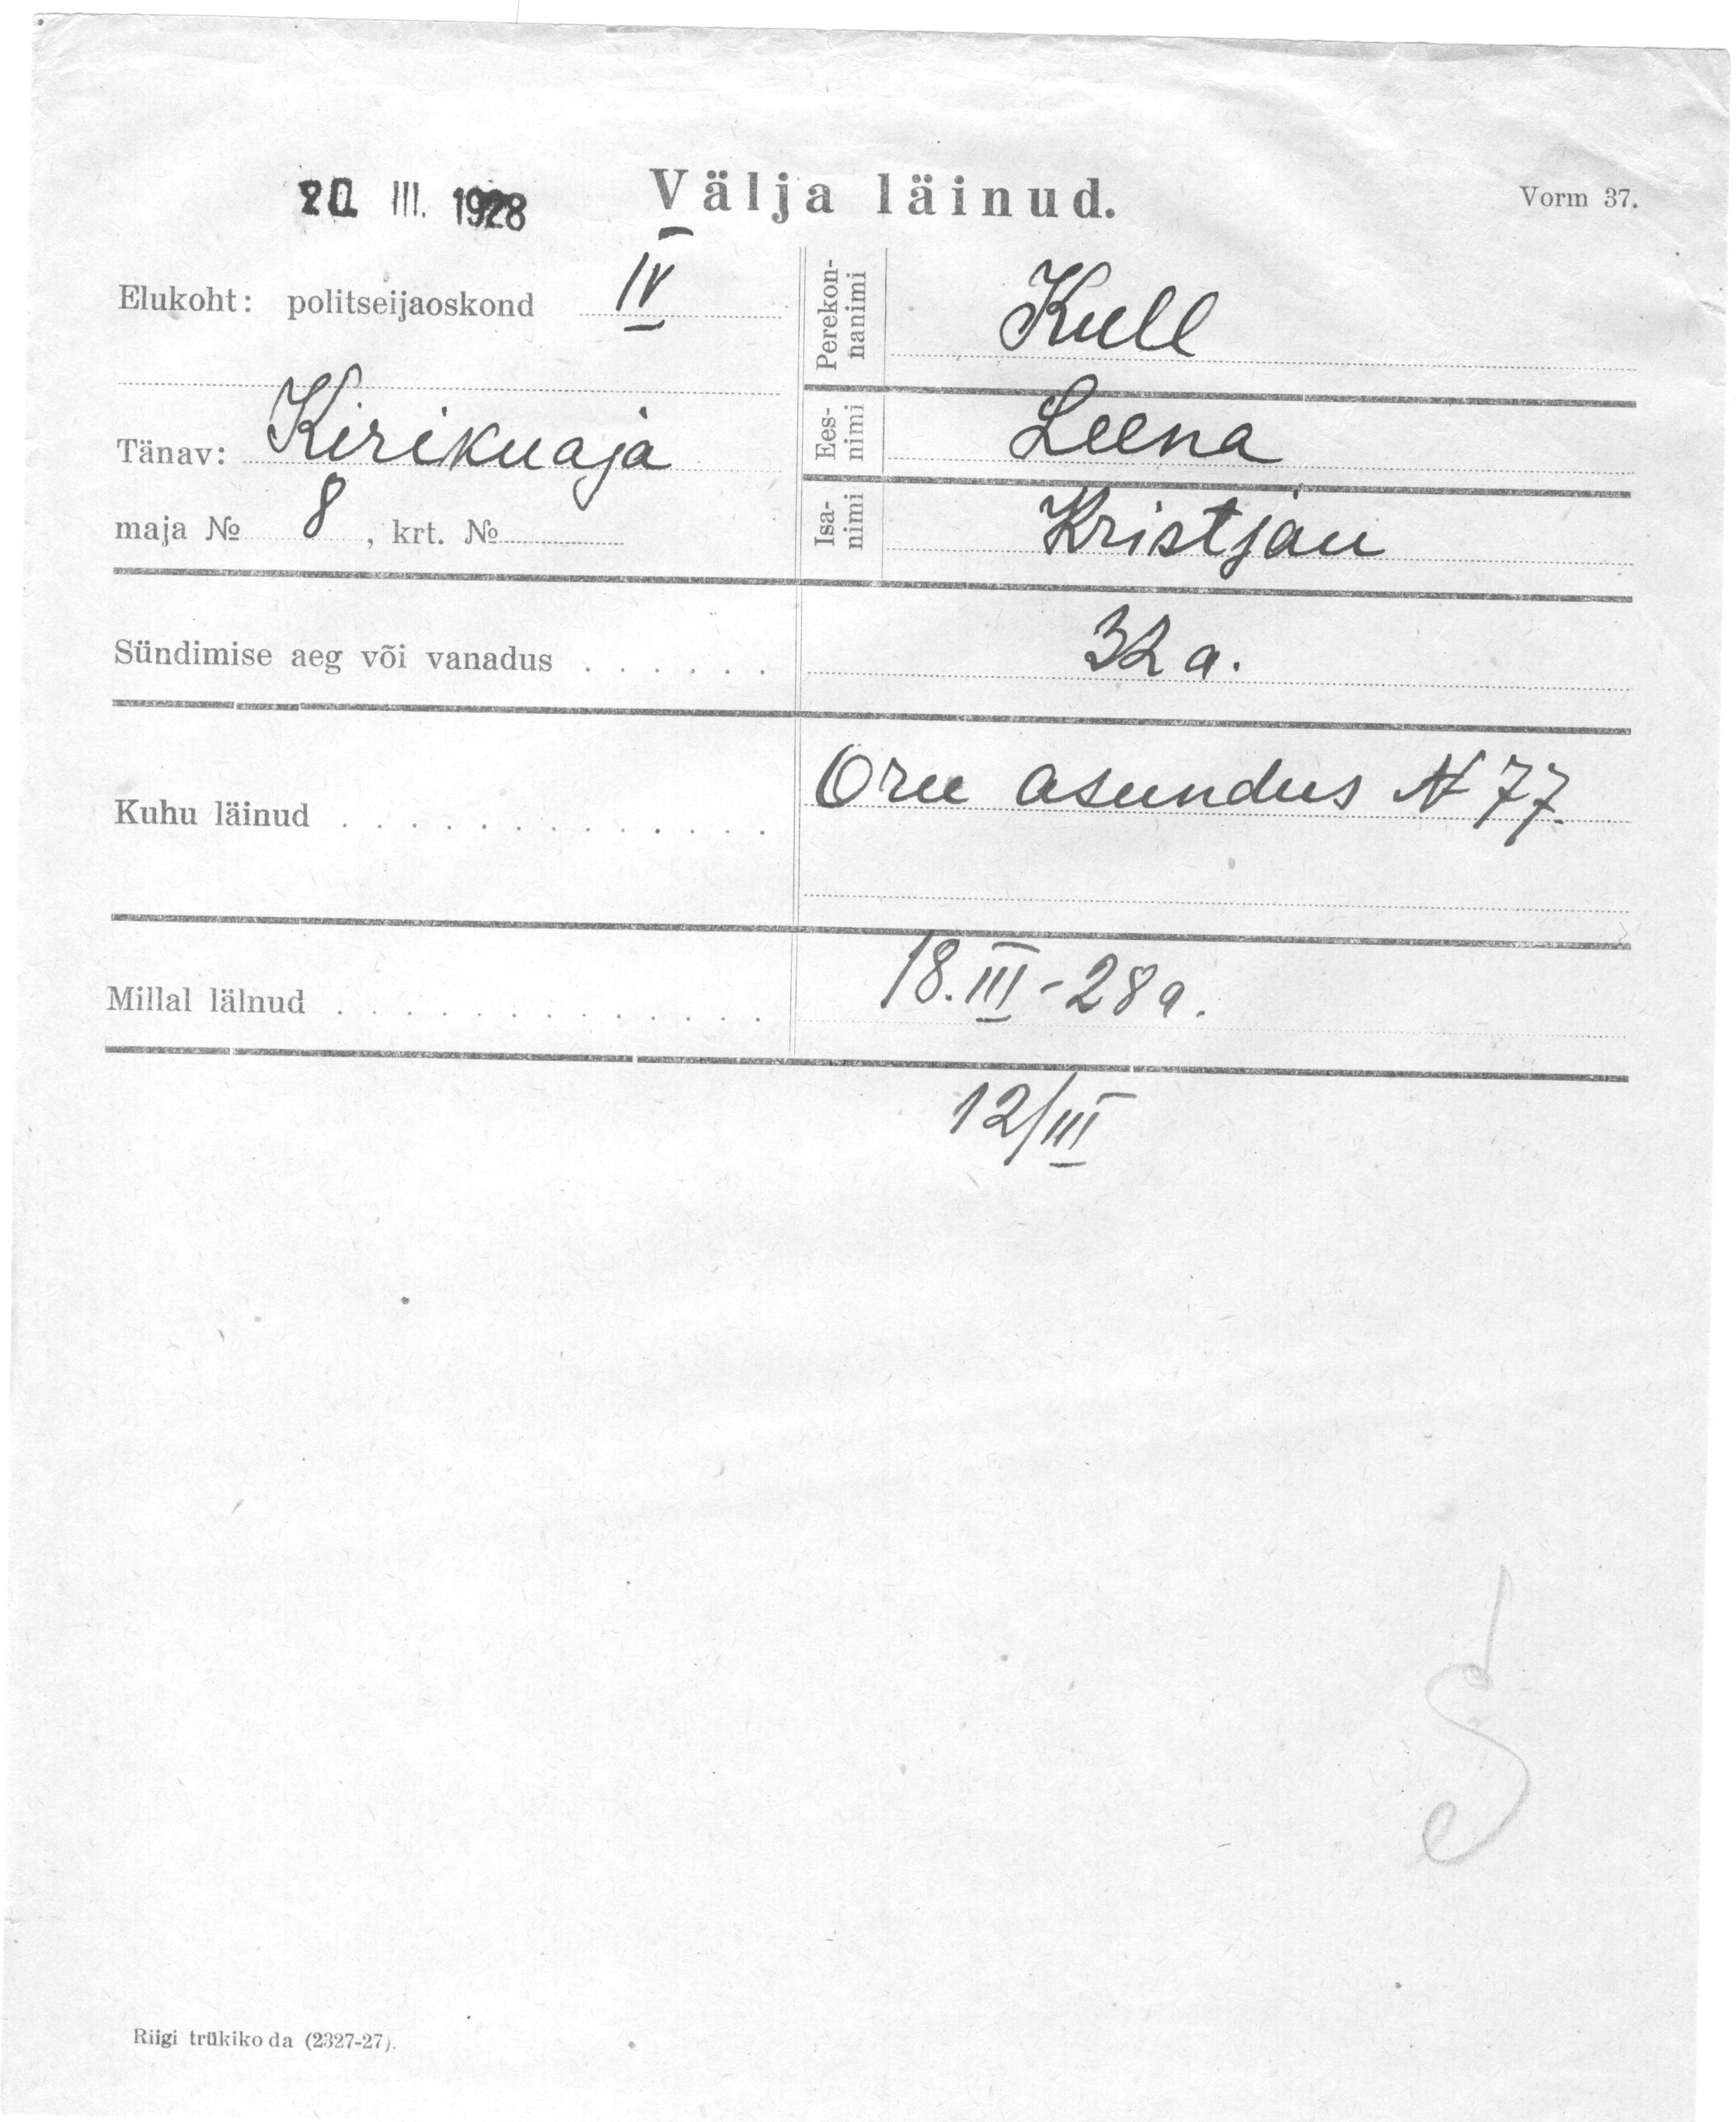 20. III. 1928
Välja läinud.
Vorm 37.
Elukoht: politseijaoskond IV
Tänav: Kirikuaja
maja № 8, krt. №
Perekon-
nanimi
Kull
Ees-
nimi
Leena
Isa-
nimi
Kristjan
Sündimise aeg või vanadus . . . . . .
32 a.
Kuhu läinud . . . . . . . . . . . . .
Oru asundus N 77.
Millal lälnud . . . . . . . . . . . . .
18. III - 28 a.
12/III
Riigi trükikoda (2327-27).